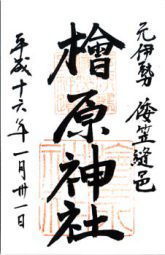 元伊勢 倭笠縫邑
檜原神社
平成十六年一月卅一日